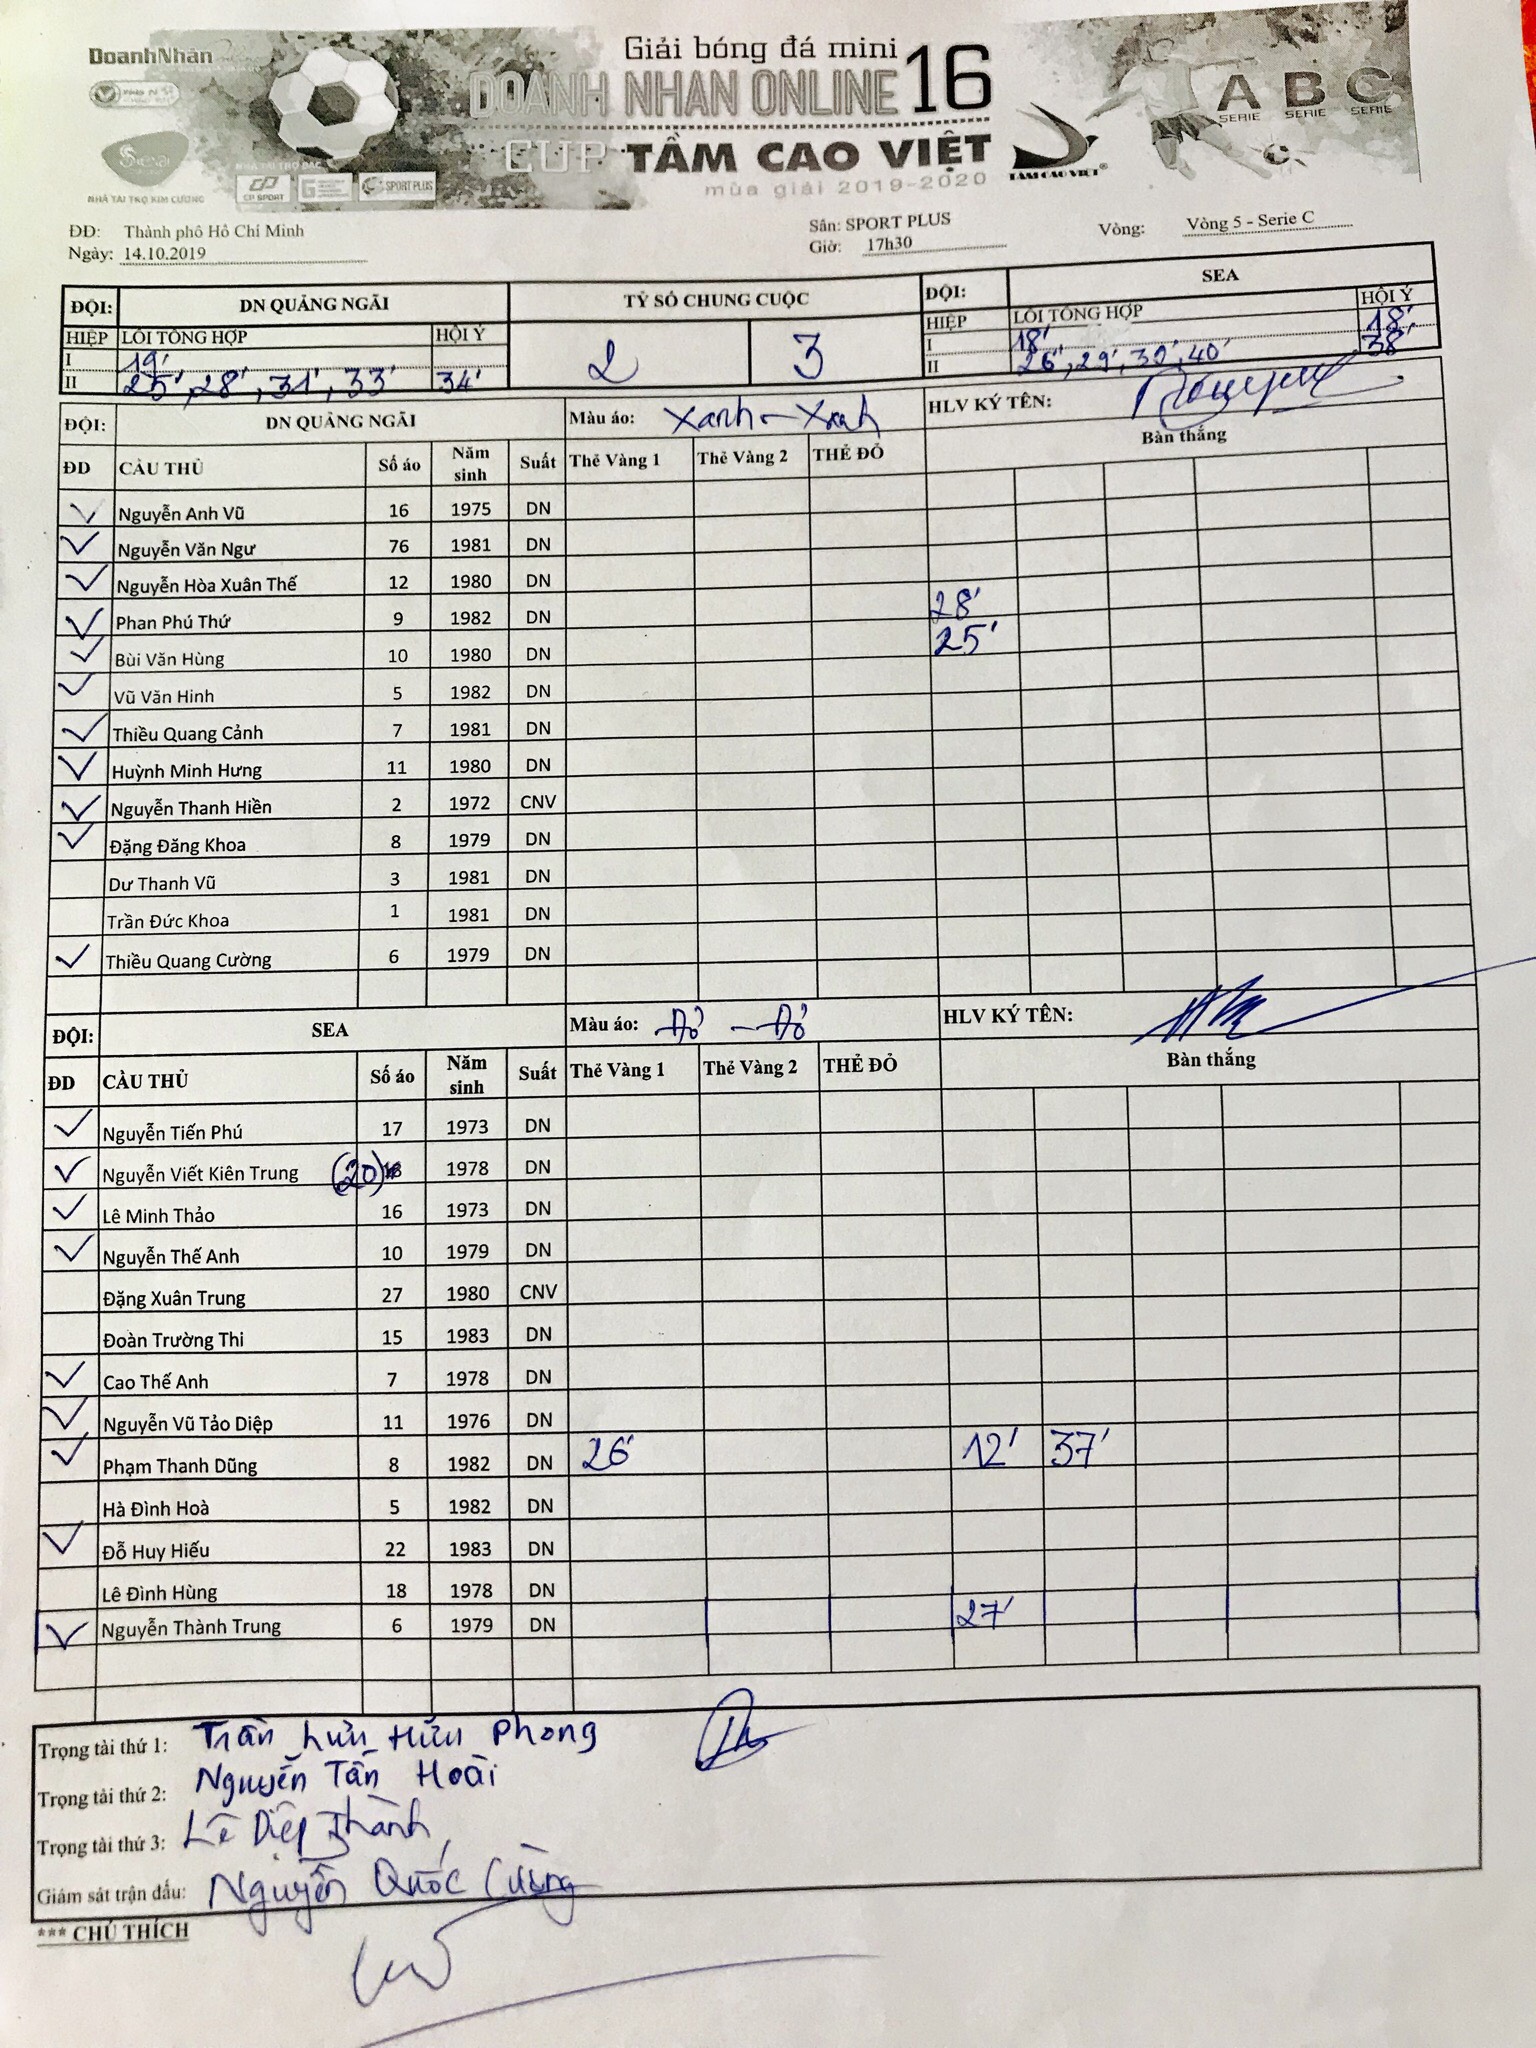 DoanhNhân
Giải bóng đá mini
DOANH NHAN ONLINE 16
CUP TẦM CAO VIỆT
mùa giải 2019-2020
A SERIE B SERIE C SERIE
TẦM CAO VIỆT
Sea
NHÀ TÀI TRỢ KIM CƯƠNG
CP SPORT
SPORT PLUS
ĐĐ: Thành phô Hồ Chí Minh
Sân: SPORT PLUS
Vòng: Vòng 5 - Serie C
Ngày: 14.10.2019
Giờ: 17h30
ĐỘI: DN QUẢNG NGÃI TỶ SỐ CHUNG CUỘC ĐỘI: SEA
HIỆP LỖI TỔNG HỢP HỘI Ý 2 3 HIỆP LỖI TỔNG HỢP HỘI Ý
I 19' I 18' 18'
II 25', 28', 31', 33' 34' II 26', 29', 30', 40' 38'
ĐỘI: DN QUẢNG NGÃI Màu áo: Xanh - Xanh HLV KÝ TÊN:
ĐD CẦU THỦ Số áo Năm sinh Suất Thẻ Vàng 1 Thẻ Vàng 2 THẺ ĐỎ Bàn thắng
Nguyễn Anh Vũ 16 1975 DN
Nguyễn Văn Ngư 76 1981 DN
Nguyễn Hòa Xuân Thế 12 1980 DN
Phan Phú Thứ 9 1982 DN 28'
Bùi Văn Hùng 10 1980 DN 25'
Vũ Văn Hinh 5 1982 DN
Thiều Quang Cảnh 7 1981 DN
Huỳnh Minh Hưng 11 1980 DN
Nguyễn Thanh Hiền 2 1972 CNV
Đặng Đăng Khoa 8 1979 DN
Dư Thanh Vũ 3 1981 DN
Trần Đức Khoa 1 1981 DN
Thiều Quang Cường 6 1979 DN
ĐỘI: SEA Màu áo: Đỏ - Đỏ HLV KÝ TÊN:
ĐD CẦU THỦ Số áo Năm sinh Suất Thẻ Vàng 1 Thẻ Vàng 2 THẺ ĐỎ Bàn thắng
Nguyễn Tiến Phú 17 1973 DN
Nguyễn Viết Kiên Trung (20) 1978 DN
Lê Minh Thảo 16 1973 DN
Nguyễn Thế Anh 10 1979 DN
Đặng Xuân Trung 27 1980 CNV
Đoàn Trường Thi 15 1983 DN
Cao Thế Anh 7 1978 DN
Nguyễn Vũ Tảo Diệp 11 1976 DN
Phạm Thanh Dũng 8 1982 DN 26' 12' 37'
Hà Đình Hoà 5 1982 DN
Đỗ Huy Hiếu 22 1983 DN
Lê Đình Hùng 18 1978 DN
Nguyễn Thành Trung 6 1979 DN 27'
Trọng tài thứ 1: Trần Lưu Hữu Phong
Trọng tài thứ 2: Nguyễn Tấn Hoài
Trọng tài thứ 3: Lê Diệp Thành
Giám sát trận đấu: Nguyễn Quốc Cường
*** CHÚ THÍCH